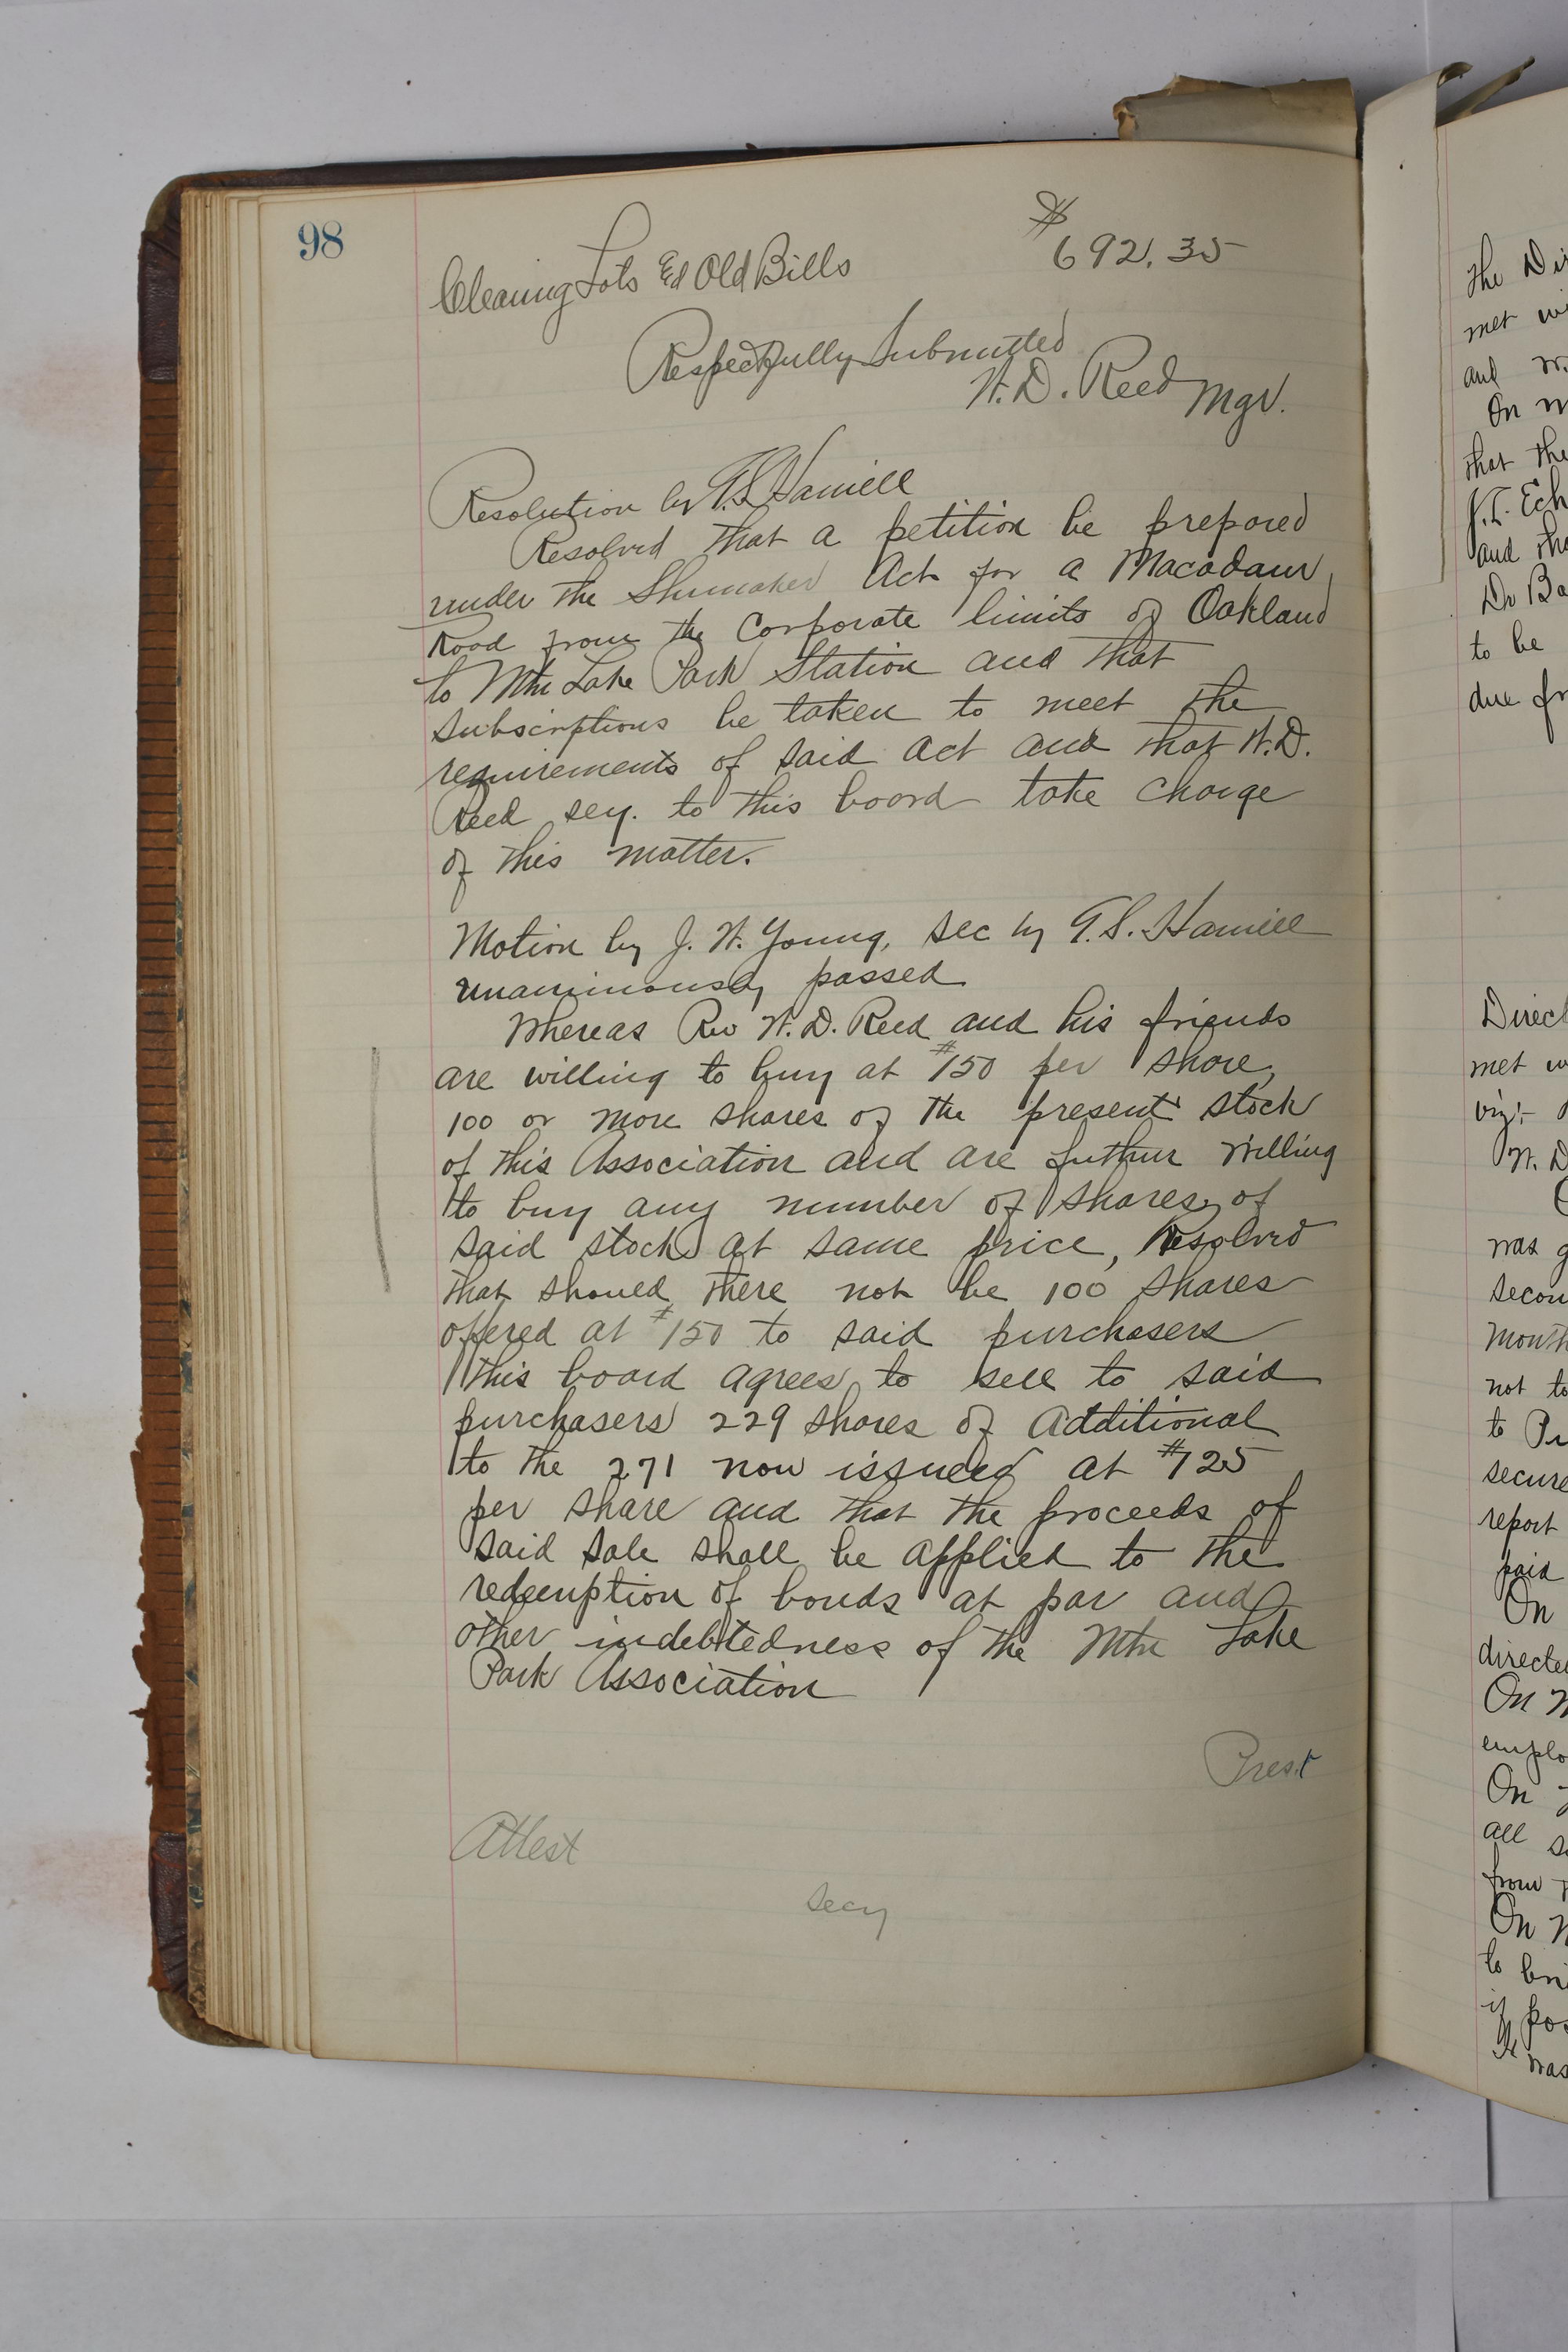 98
$
Cleaning Lots & Old Bills 692.35
Respectfully Submitted
W. D. Reed Mgr.
Resolution by G. S. Hamill
Resolved that a petition be prepared
under the Shumaker Act for a Macadam
Road from the Corporate limits of Oakland
to Mtn Lake Park Station and that
subscriptions be taken to meet the
requirements of said act and that W. D.
Reed secy. to this board take charge
of this matter.
Motion by J. W. Young, sec by G. S. Hamill
unanimously passed
Whereas Rev W. D. Reed and his friends
are willing to buy at $150 per share,
100 or more shares of the present stock
of this Association and are futhur willing
to buy any number of shares of
said stock at same price, Resolved
that should there not be 100 shares
offered at $150 to said purchasers
this board agrees to sell to said
purchasers 229 shares of additional
to the 271 now issued at $125
per share and that the proceeds of
said sale shall be applied to the
redemption of bonds at par and
other indebtedness of the Mtn Lake
Park Association
Prest
Attest
Secy
the
met
and
On
that the
J. T.
and
Dr
to be
due
met
viz:-
W. D
was
not to
to
secure
report
paid
On
On
On
all
from
On
to
if
was